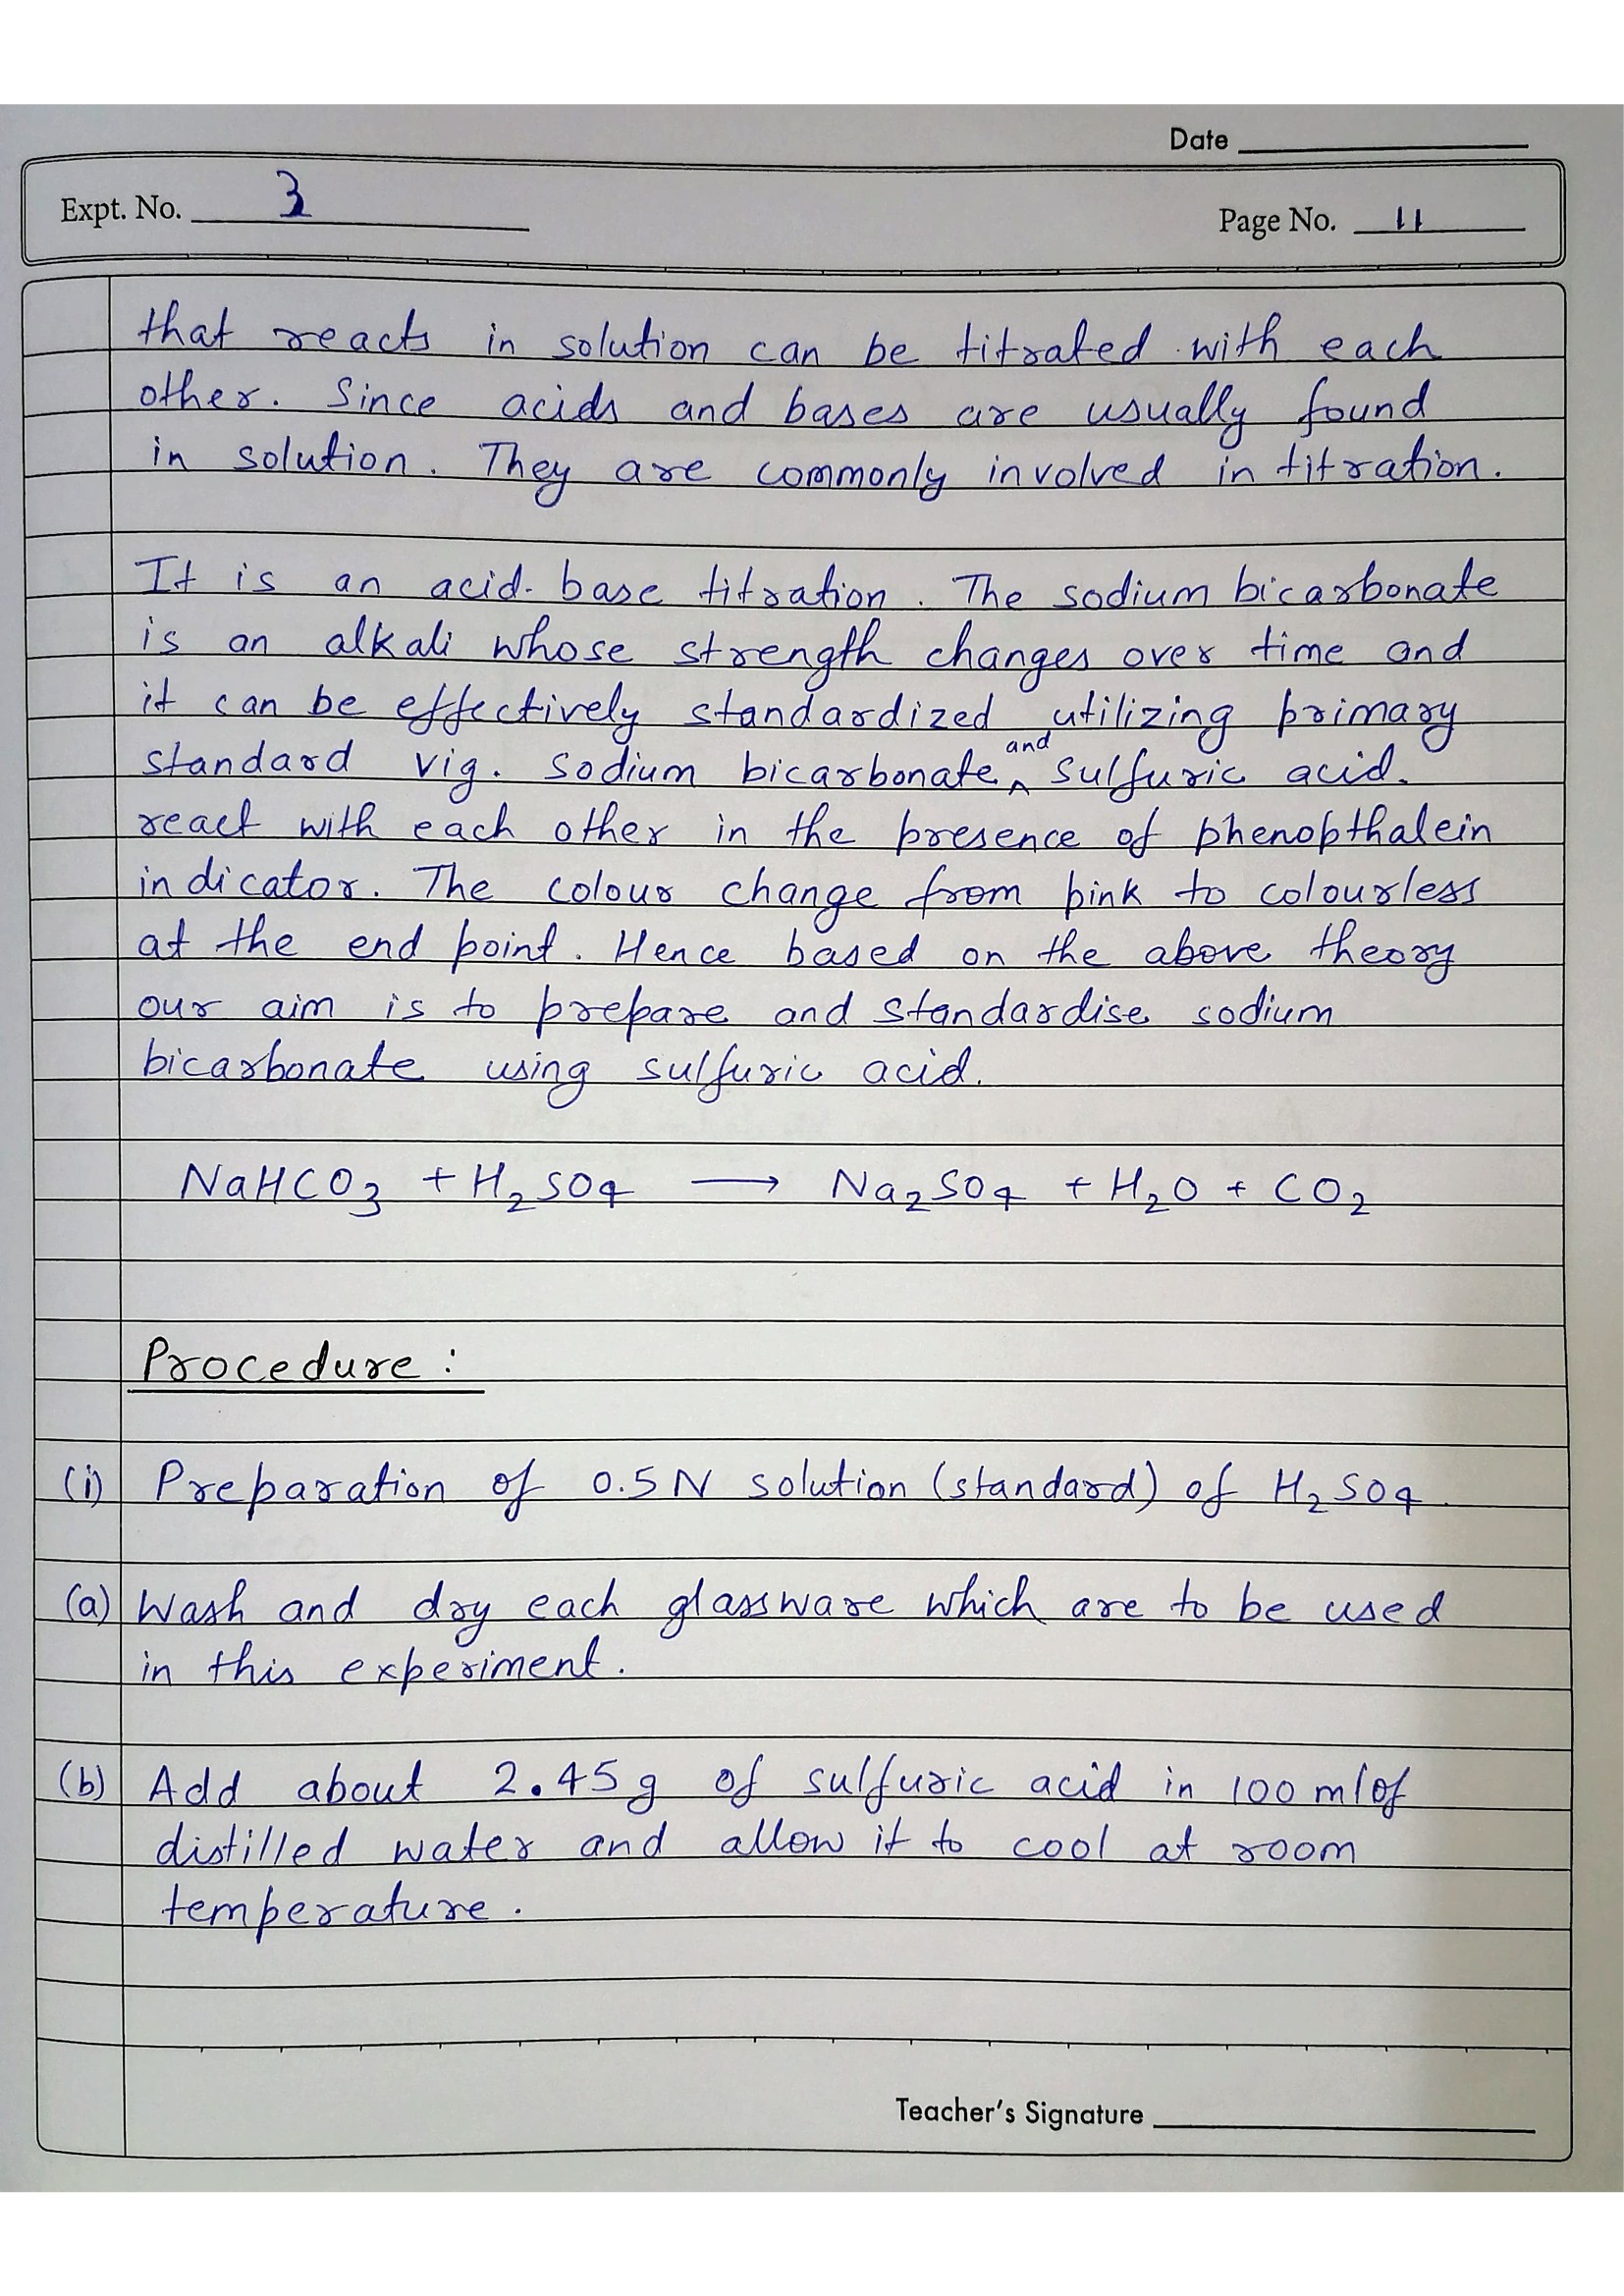 Date
Expt. No. 3
Page No. 11
that reacts in solution can be titrated with each
other. Since acids and bases are usually found
in solution. They are commonly involved in titration.
It is an acid-base titration. The sodium bicarbonate
is an alkali whose strength changes over time and
it can be effectively standardized utilizing primary
standard vig. Sodium bicarbonate and sulfuric acid.
react with each other in the presence of phenopthalein
indicator. The colour change from pink to colourless
at the end point. Hence based on the above theory
our aim is to prepare and standardise sodium
bicarbonate using sulfuric acid.
NaHCO₃ + H₂SO₄ ⟶ Na₂SO₄ + H₂O + CO₂
Procedure :
(i) Preparation of 0.5 N solution (standard) of H₂SO₄.
(a) Wash and dry each glassware which are to be used
in this experiment.
(b) Add about 2.45g of sulfuric acid in 100 ml of
distilled water and allow it to cool at room
temperature.
Teacher's Signature